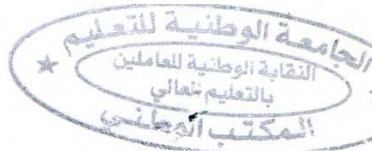 الجامعة الوطنية للتعليم
النقابة الوطنية للعاملين
بالتعليم العالي
المكتب الوطني